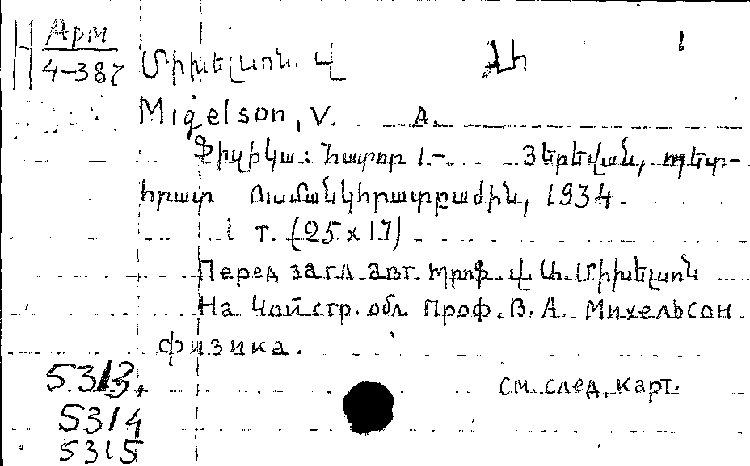 Арм
4-387
Միխելսոն. Վ Ա
Migelson, V. A.
Ֆիզիկա: Հատոր 1.- Յերեվան, պետ-
հրատ Ուսմանկհրատբաժին, 1934.
1 т. (25 x 17)
Перед загл. авт. պրոֆ. Վ. Ա. Միխելսոն
На 4ой стр. обл. Проф. В. А. Михельсон
физика.
5313,
5314
5315
см. след. карт.